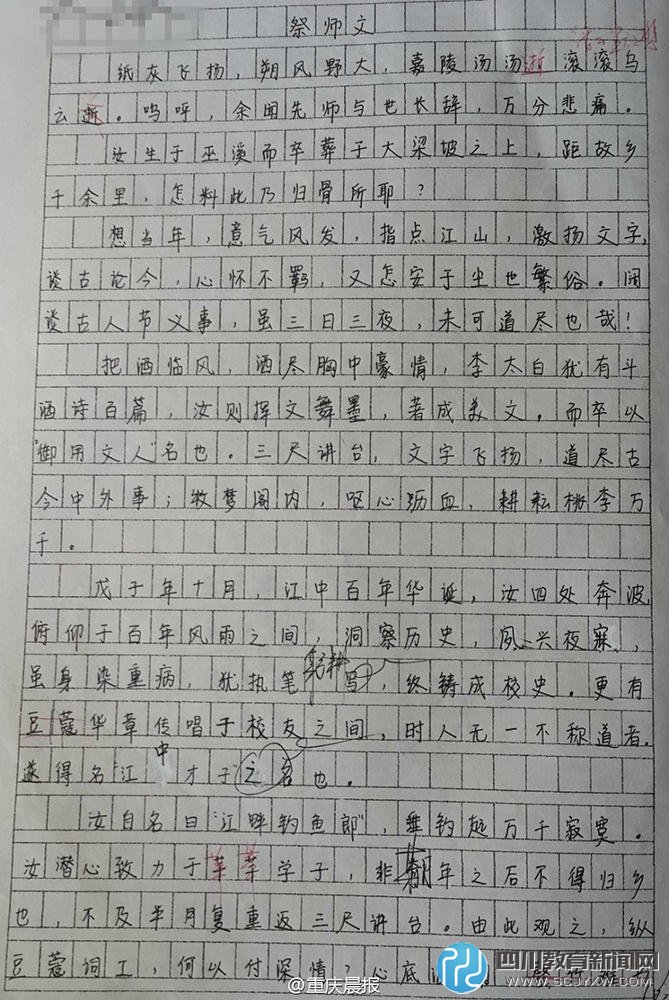 祭师文
纸灰飞扬，朔风野大，嘉陵汤汤逝滚滚乌
云逝。呜呼，余闻先师与世长辞，万分悲痛。
汝生于巫溪而卒葬于大梁坡之上，距故乡
千余里，怎料此乃归骨所耶？
想当年，意气风发，指点江山，激扬文字，
谈古论今，心怀不羁，又怎安于尘世繁俗。闲
谈古人节义事，虽三日三夜，未可道尽也哉！
把酒临风，洒尽胸中豪情，李太白犹有斗
酒诗百篇，汝则挥文舞墨，著成美文。而卒以
"御用文人"名也。三尺讲台，文字飞扬，道尽古
今中外事；牧梦阁内，呕心沥血，耕耘桃李万
千。
戊子年十月，江中百年华诞，汝四处奔波，
俯仰于百年风雨之间，洞察历史，夙兴夜寐，
虽身染重病，犹执笔耕写，终铸成校史。更有
豆蔻华章传唱于校友之间，时人无一不称道者。
遂得名"江中才子"之名也。
汝自名曰"江畔钓鱼郎"，垂钓起万千寂寞。
汝潜心致力于莘莘学子，非期年之后不得归乡
也，不及半月复重返三尺讲台。由此观之，纵
豆蔻词工，何以付深情？心底
@重庆晨报
四川教育新闻网
www.scjyxw.com